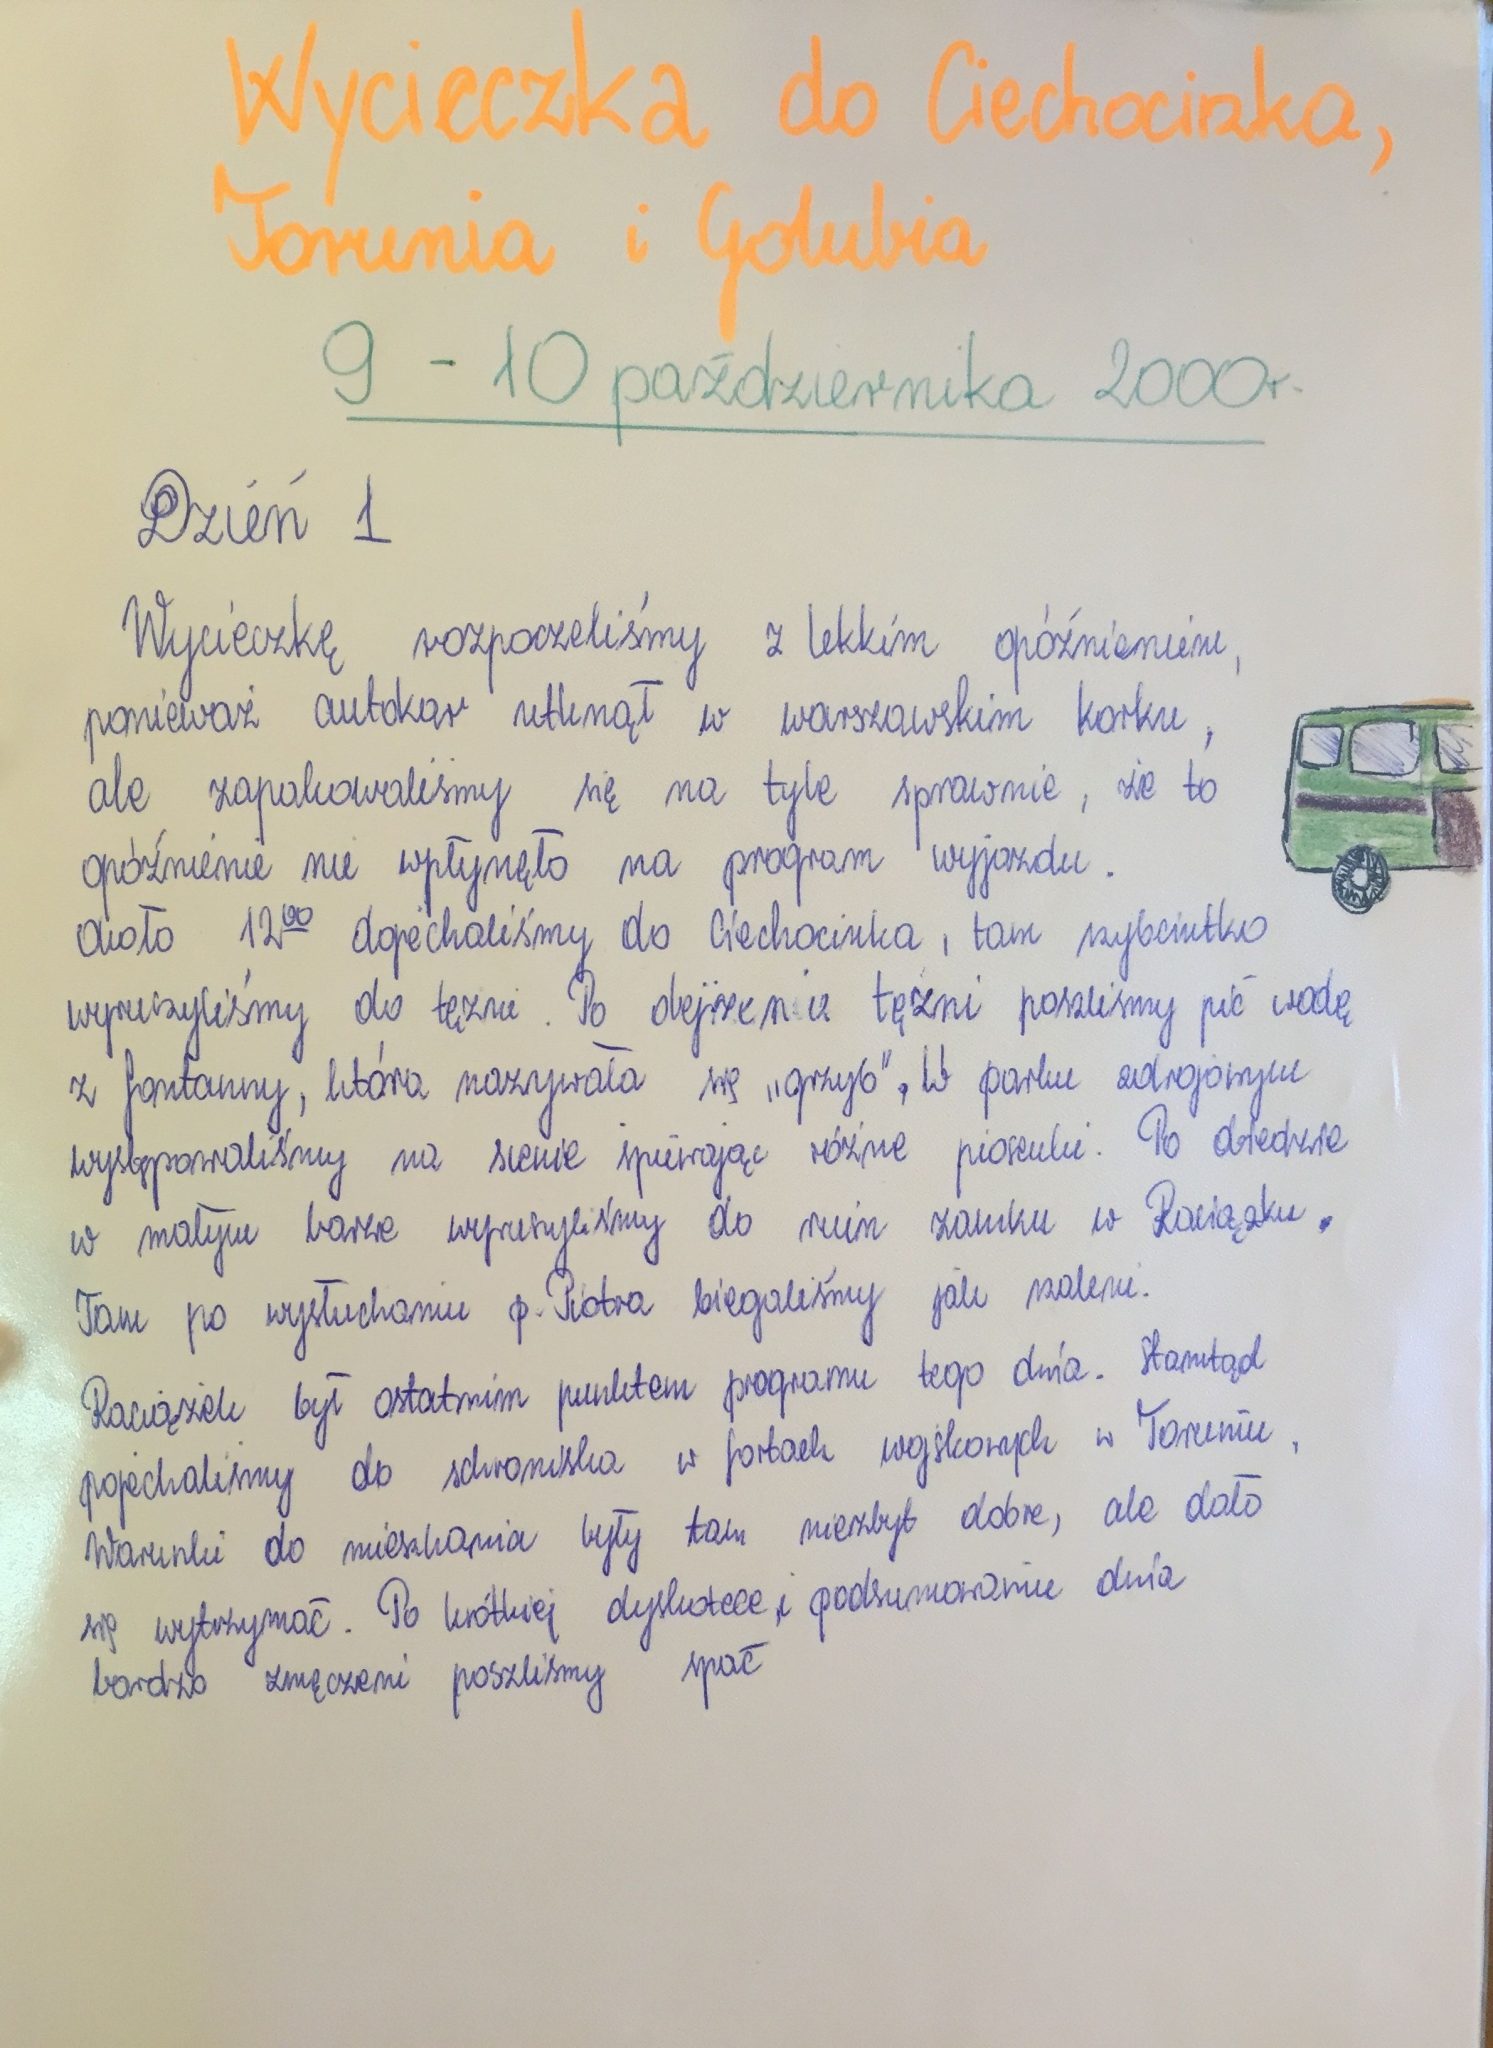 Wycieczka do Ciechocinka,
Torunia i Golubia
9 - 10 października 2000r.
Dzień 1
Wycieczkę rozpoczeliśmy z lekkim opóźnieniem,
ponieważ autokar utknął w warszawskim korku,
ale zapakowaliśmy się na tyle sprawnie, że to
opóźnienie nie wpłynęło na program wyjazdu.
Około 12⁰⁰ dojechaliśmy do Ciechocinka, tam szybciutko
wyruszyliśmy do tężni. Po tężni poszliśmy pić wodę
z fontanny, która nazywała się „grzyb". W parku zdrojowym
występowaliśmy na scenie śpiewając różne piosenki. Po obiedzie
w małym barze wyruszyliśmy do ruin zamku w Raciążku.
Tam po wysłuchaniu p. Piotra biegaliśmy jak szaleni.
Raciążek był ostatnim punktem programu tego dnia. Stamtąd
pojechaliśmy do schroniska w fortach wojskowych w Toruniu.
Warunki do mieszkania były tam niezbyt dobre, ale dało
się wytrzymać. Po krótkiej dyskotece i podsumowaniu dnia
bardzo zmęczeni poszliśmy spać